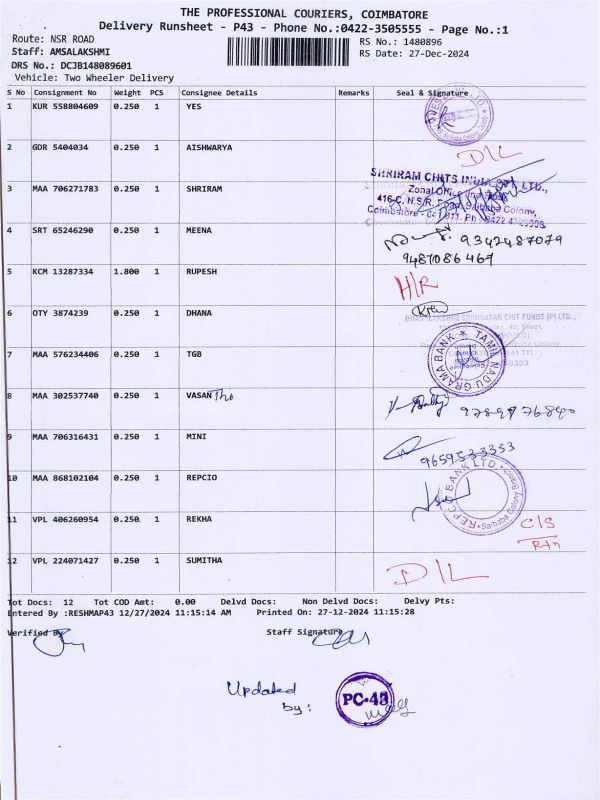 THE PROFESSIONAL COURIERS, COIMBATORE
Delivery Runsheet - P43 - Phone No.:0422-3505555 - Page No.:1
Route: NSR ROAD
RS No.: 1480896
Staff: AMSALAKSHMI
RS Date: 27-Dec-2024
DRS No.: DCJB148089601
Vehicle: Two Wheeler Delivery
S No Consignment No Weight PCS Consignee Details Remarks Seal & Signature
1 KUR 558804609 0.250 1 YES
2 GDR 5404034 0.250 1 AISHWARYA D/L
SHRIRAM CHITS INDIA PVT. LTD.,
3 MAA 706271783 0.250 1 SHRIRAM
416-C, N.S.R. Road, Saibaba Colony,
Coimbatore - 641 011.
4 SRT 65246290 0.250 1 MEENA 9342487079
9487086467
5 KCM 13287334 1.800 1 RUPESH H/R
6 OTY 3874239 0.250 1 DHANA
SRINIVASAN CHIT FUNDS (P) LTD.,
7 MAA 576234406 0.250 1 TGB TAMIL NADU GRAMA BANK
8 MAA 302537740 0.250 1 VASAN Tho
9 MAA 706316431 0.250 1 MINI 9659533353
10 MAA 868102104 0.250 1 REPCIO REPCO BANK LTD. Saibaba Colony Branch
11 VPL 406260954 0.250 1 REKHA C/S
Rtn
12 VPL 224071427 0.250 1 SUMITHA D/L
Tot Docs: 12 Tot COD Amt: 0.00 Delvd Docs: Non Delvd Docs: Delvy Pts:
Entered By :RESHMAP43 12/27/2024 11:15:14 AM Printed On: 27-12-2024 11:15:28
Verified By Staff Signature
Updated
by: PC-43